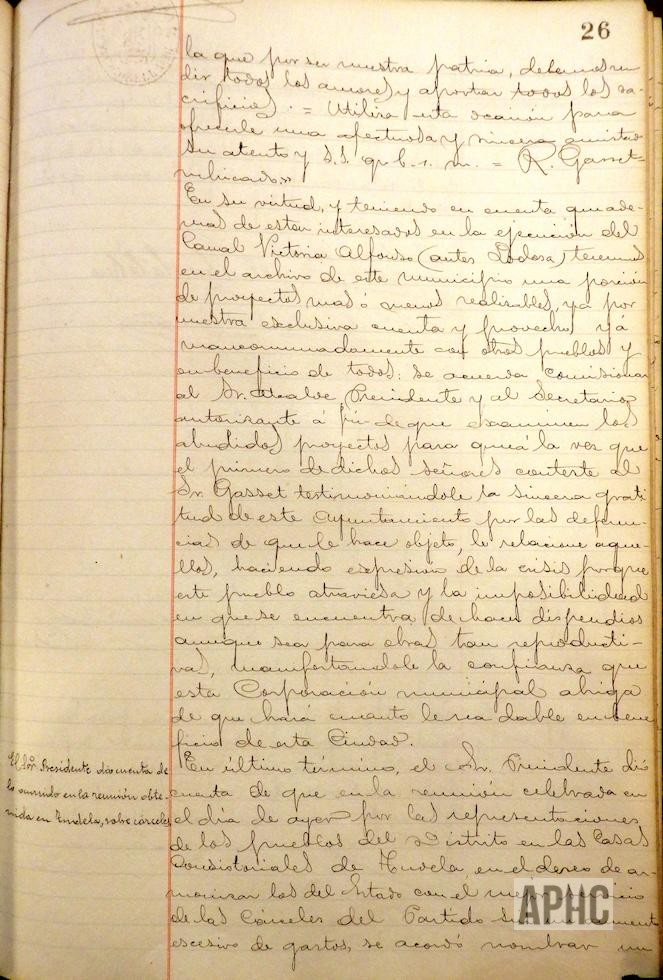 26
la que por ser nuestra patria, debemos ren
dir todos los amores y aportar todos los sa-
crificios. = Utilizo esta ocasión para
ofrecerle una afectuosa y sincera amistad
su atento y s.s. q. b. s. m. = R. Gasset =
rubricado.»
En su virtud, y teniendo en cuenta que ade-
mas de estar interesados en la ejecución del
Canal Victoria Alfonso (antes Lodosa) tenemos
en el archivo de este municipio una porción
de proyectos mas ó menos realizables, ya por
nuestra esclusiva cuenta y provecho, yá
mancomunadamente con otros pueblos y
en beneficio de todos: se acuerda comisionar
al Sr. Alcalde Presidente y al Secretario
autorizante á fin de que examinen los
aludidos proyectos para que á la vez que
el primero de dichos señores conteste al
Sr. Gasset testimoniándole la sincera grati
tud de este Ayuntamiento por las deferen-
cias de que le hace objeto, le relacione aque-
llos, haciendo espresión de la crisis porque
este pueblo atraviesa y la imposibilidad
en que se encuentra de hacer dispendios
aunque sea para obras tan reproducti-
vas, manifestándole la confianza que
esta Corporación municipal abriga
de que hará cuanto le sea dable en bene
ficio de esta Ciudad.
El Sor. Presidente dá cuenta de
lo ocurrido en la reunión obte-
nida en Tudela, sobre cárceles
En último término, el Sr. Presidente dió
cuenta de que en la reunión celebrada en
el día de ayer por las representaciones
de los pueblos del Distrito en las Casas
Consistoriales de Tudela, en el deseo de ar-
monizar los del Estado con el mejor servicio
de las Cárceles del Partido sin
escesivo de gastos, se acordó nombrar un
APHC